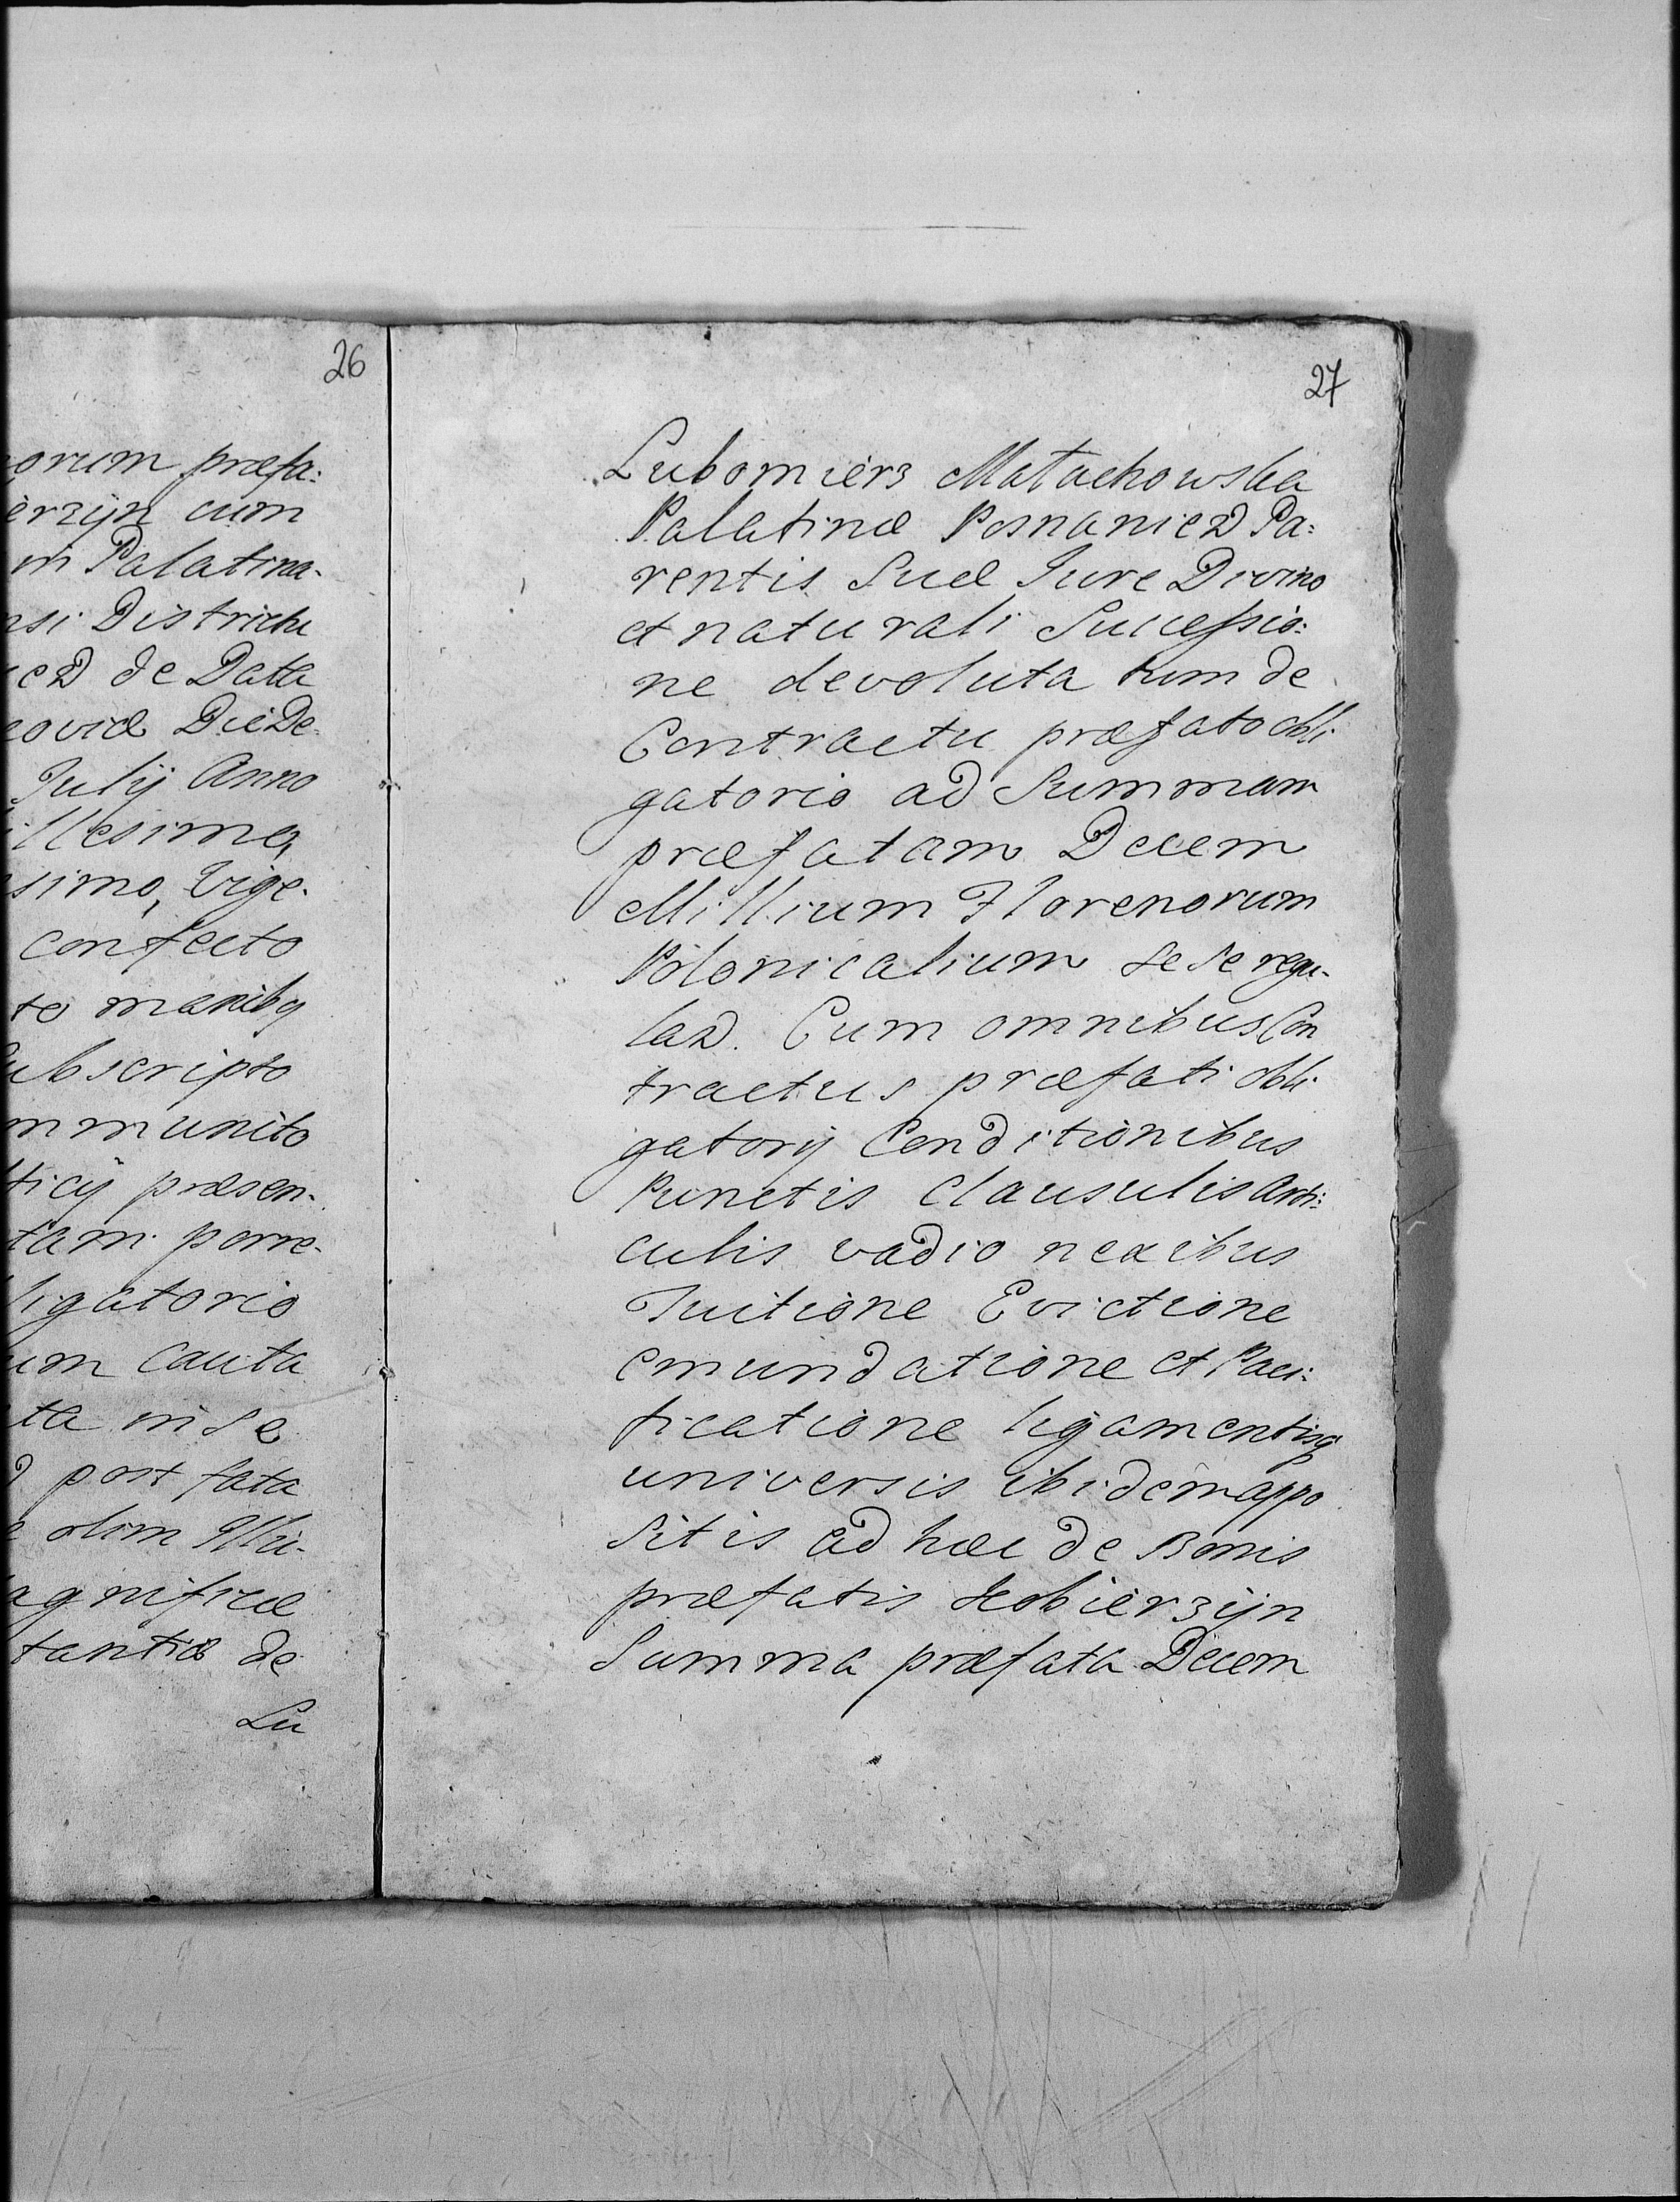 26
orum præfa:
erzyn cum
m Palatina-
nsi Districtu
de Data
coviæ Die De-
July Anno
illesimo,
simo, Vige-
confecto
to manibq
ubscripto
mmunito
ticij præsen-
tam porre-
ligatorio
um Cauta
ta in se
post fata
olim Illu-
agnificæ
tantiæ de
Lu
27
Lubomierz Małachowska
Palatinæ Posnanien Pa:
rentis Suæ Jure Divino
et naturali Successio:
ne devoluta tum de
Contractu præfato Obli
gatorio ad Summam
præfatam Decem
Millium Florenorum
Polonicalium se se regu-
lan. Cum omnibus Con
tractus præfati Obli
gatorij Conditionibus
Punctis Clausulis Arti:
culis vadio nexibus
Tuitione Evictione
emundatione et Paci:
ficatione ligamentisq
universis ibidem appo
sitis ad hæc de Bonis
præfatis Kobierzyn
Summa præfata Decem